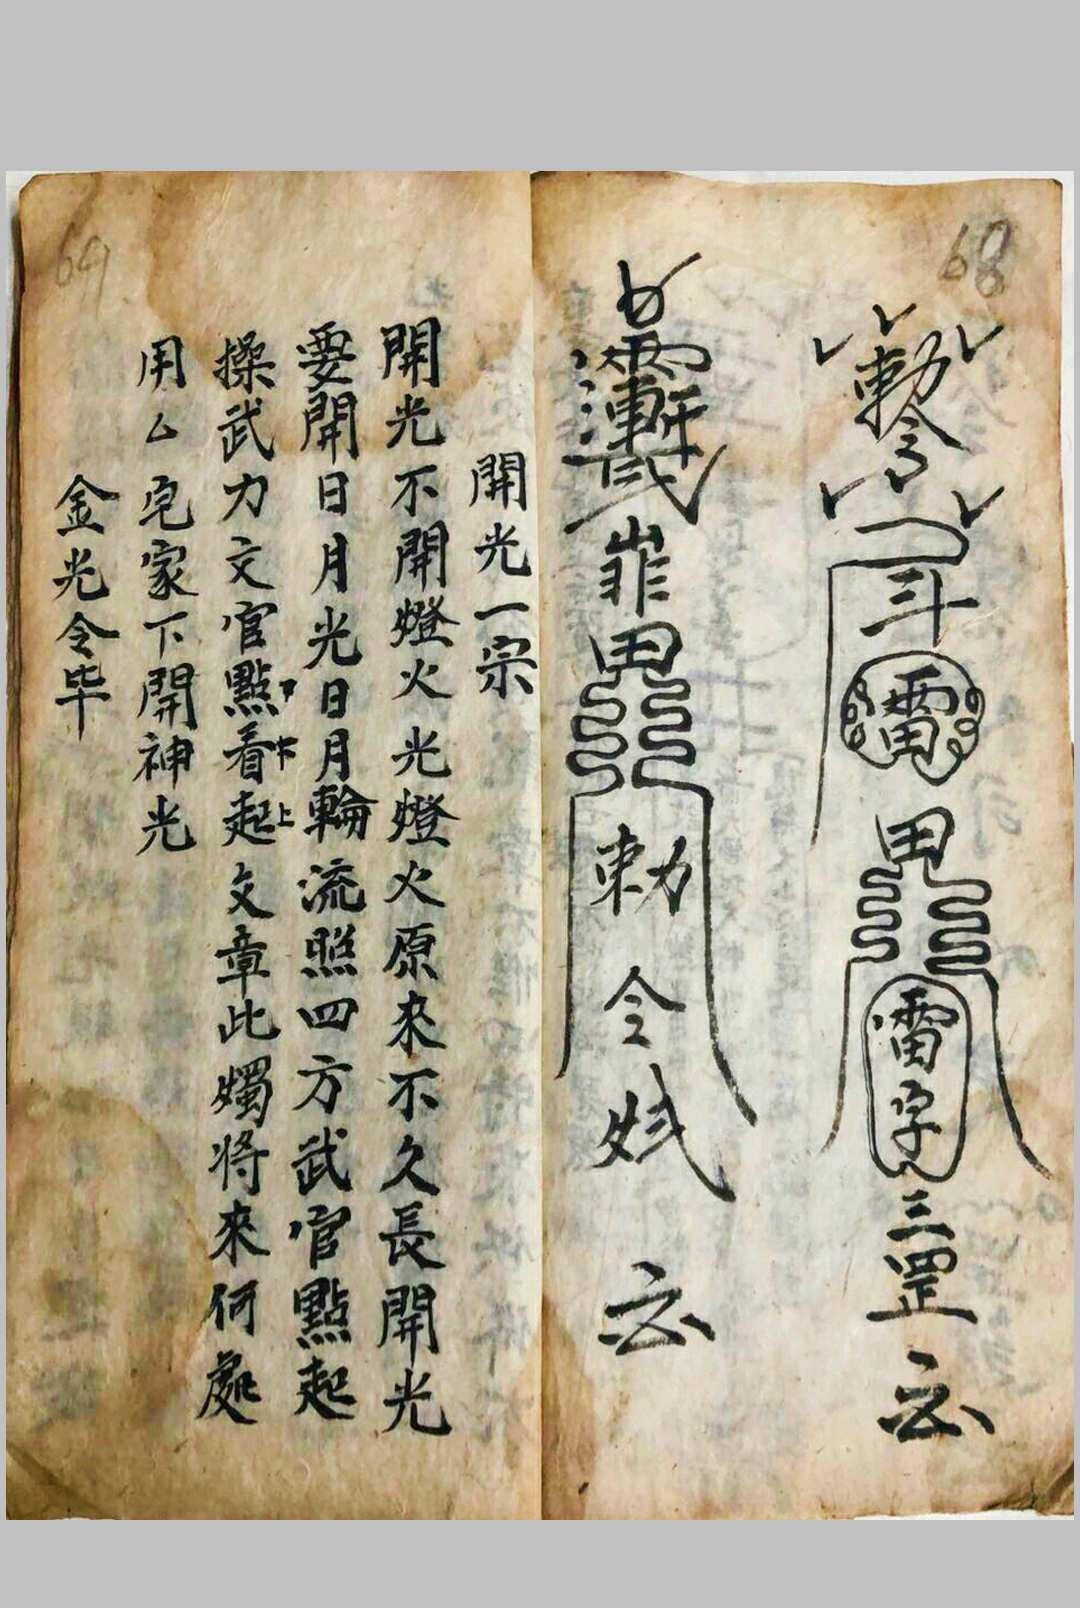 68
敕令
斗
雷
甲
雷字
三罡
敕
令
69
開光一宗
開光不開燈火光燈火原來不久長開光
要開日月光日月輪流照四方武官點起
操武力文官點看起文章此燭將來何處
用厶宅家下開神光
金光令畢